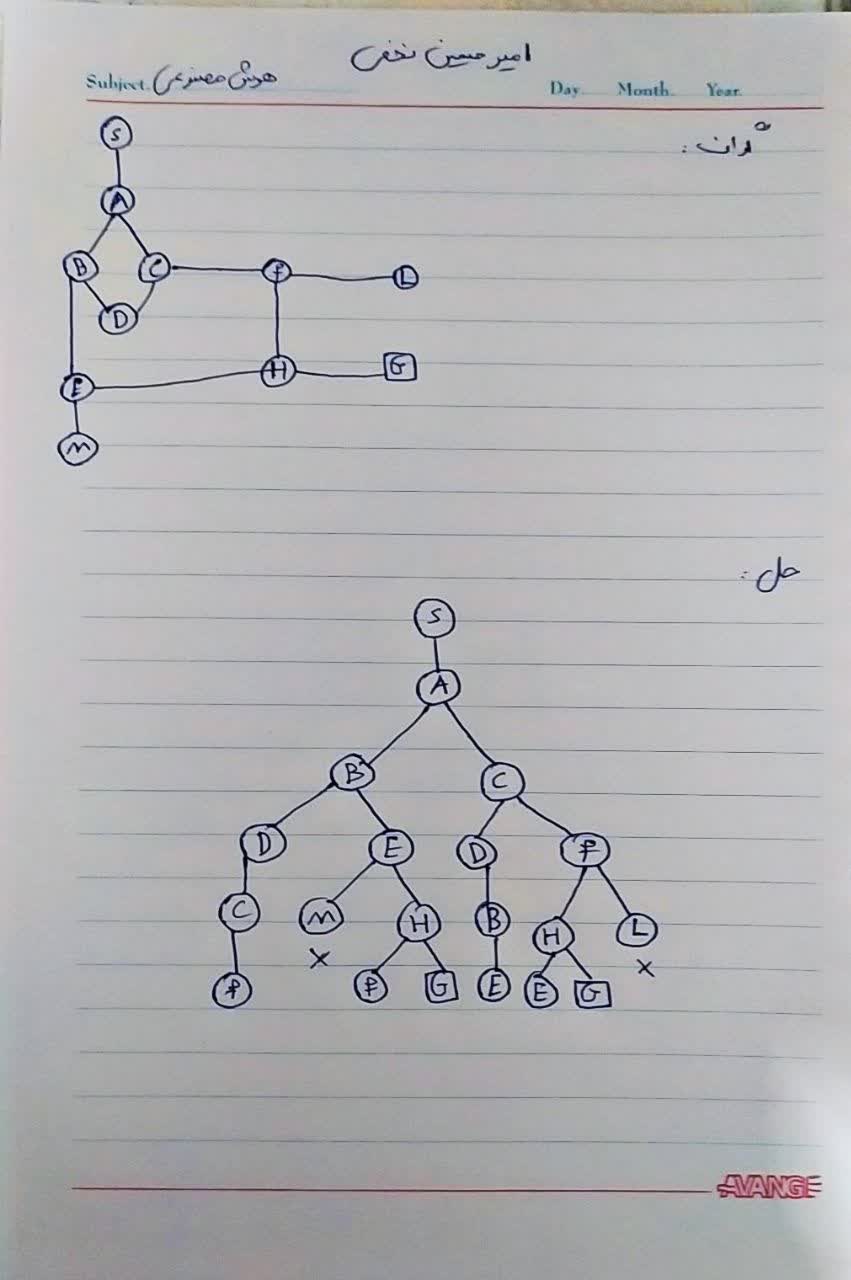 امیر حسین نخعی
Subject. هوش مصنوعی Day. Month. Year.
گراف :
S
A
B C f L
D
E H G
M
حل :
S
A
B C
D E D f
C M H B H L
x x
f f G E E G
AVANGE